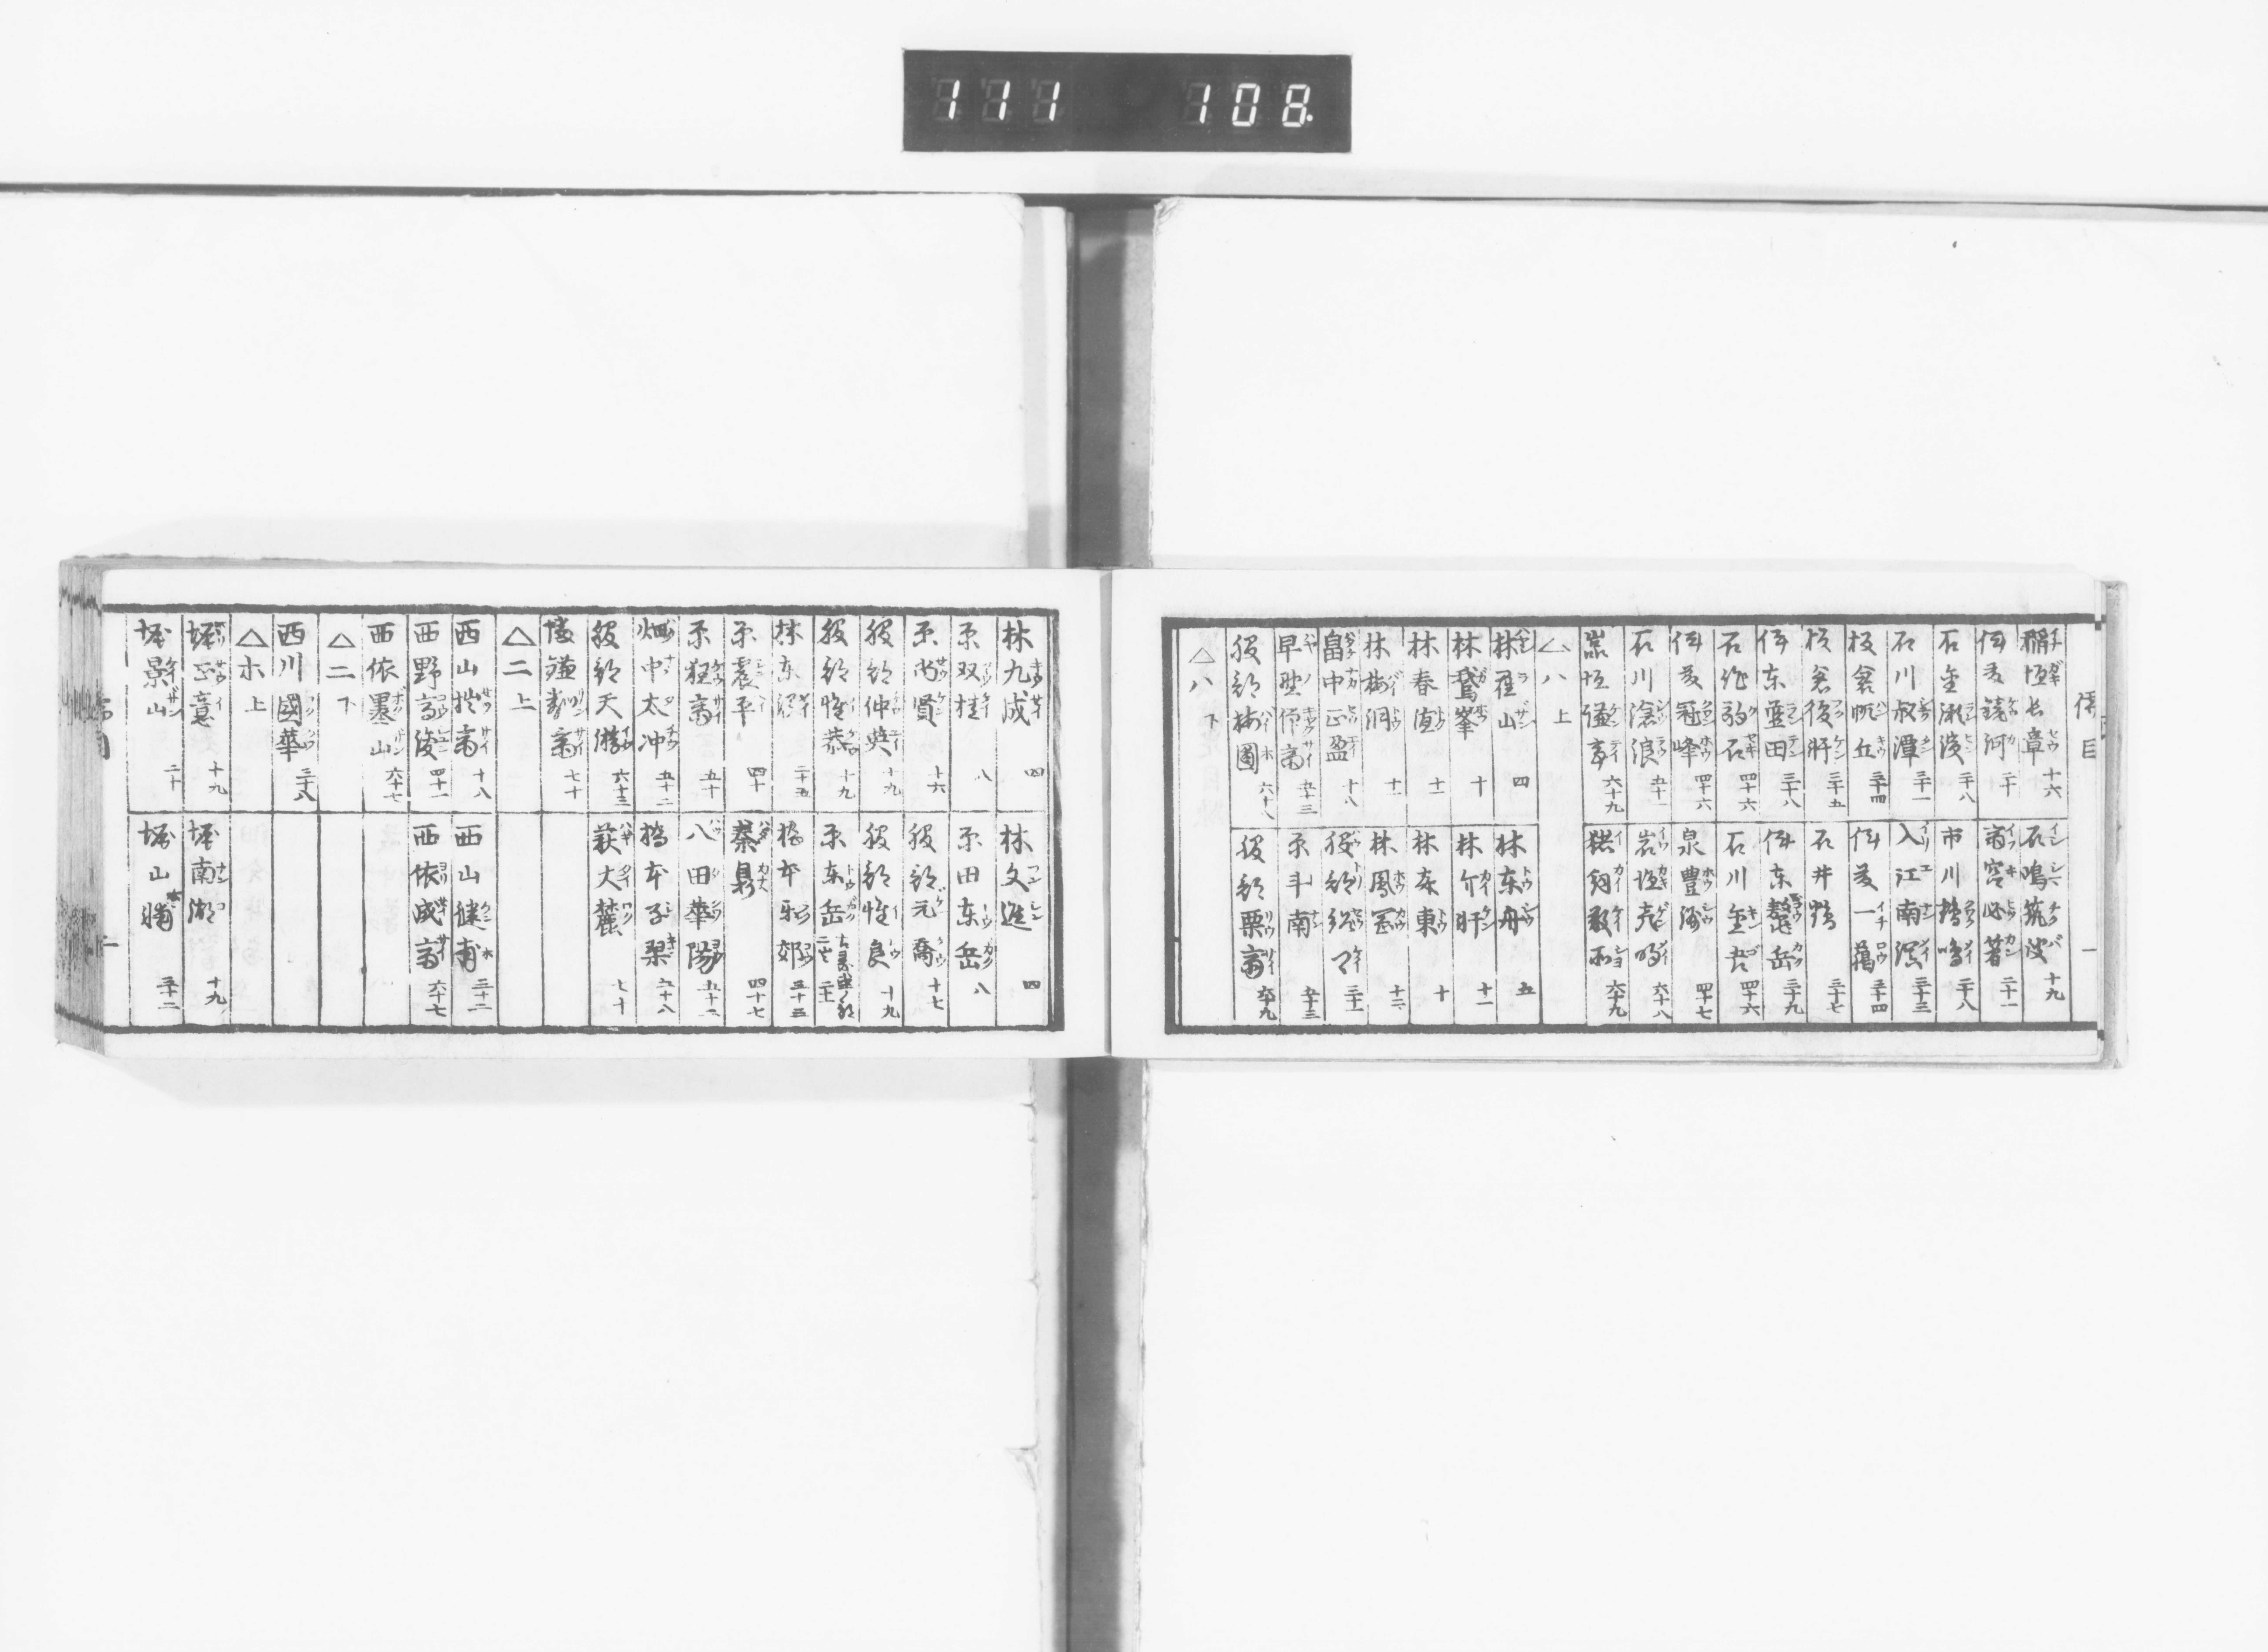 111 108.
儒目 一
稲垣長章 十六
伊藤鏡河 二十
石金瀬濱 二十八
石川叔潭 三十一
板倉帆丘 三十四
板倉復軒 三十五
伊東藍田 三十八
石作駒石 四十六
伊藤冠峰 四十六
石川滄浪 五十一
嵓垣謙亭 六十九
石嶋筑波 十九
市川鶴鳴 二十八
入江南溟 三十三
伊藤一蒿 三十四
石井鶴 三十七
伊東龜岳 三十九
石川金吾 四十六
泉豊洲 四十七
岩垣 六十八
猪飼敬所 六十九
△ハ 上
林羅山 四
林鵞峯 十
林春信 十一
林梅洞 十一
畠中正盈 十八
早野仰斎 五十三
服部梅圃 六十八
林東舟 五
林介軒 十一
林春東 十
林鳳岡 十二
服部 三十一
原斗南 五十三
服部栗斎 六十九
△ハ 下
林九成 四
原双桂 八
原尚賢 十六
服部仲英 十九
服部惟恭 十九
林東溟 三十五
原震平 四十
原狂斎 五十
畑中太冲 五十二
服部天游 六十三
塙鎌齋 七十
林文進 四
原田東岳 八
服部元喬 十七
服部惟良 十九
原東岳
橋本郊 五十三
秦鼎 四十七
八田華陽 五十二
橋本子琹 五十八
萩大麓 七十
△ニ 上
西山拙斎 十八
西野 俊 四十一
西依墨山 六十七
西山健甫 三十二
西依成斎 六十七
△ニ 下
西川國華 三十八
△ホ 上
堀正意 十九
堀景山 二十
堀南湖 十九
堀山輔 三十二